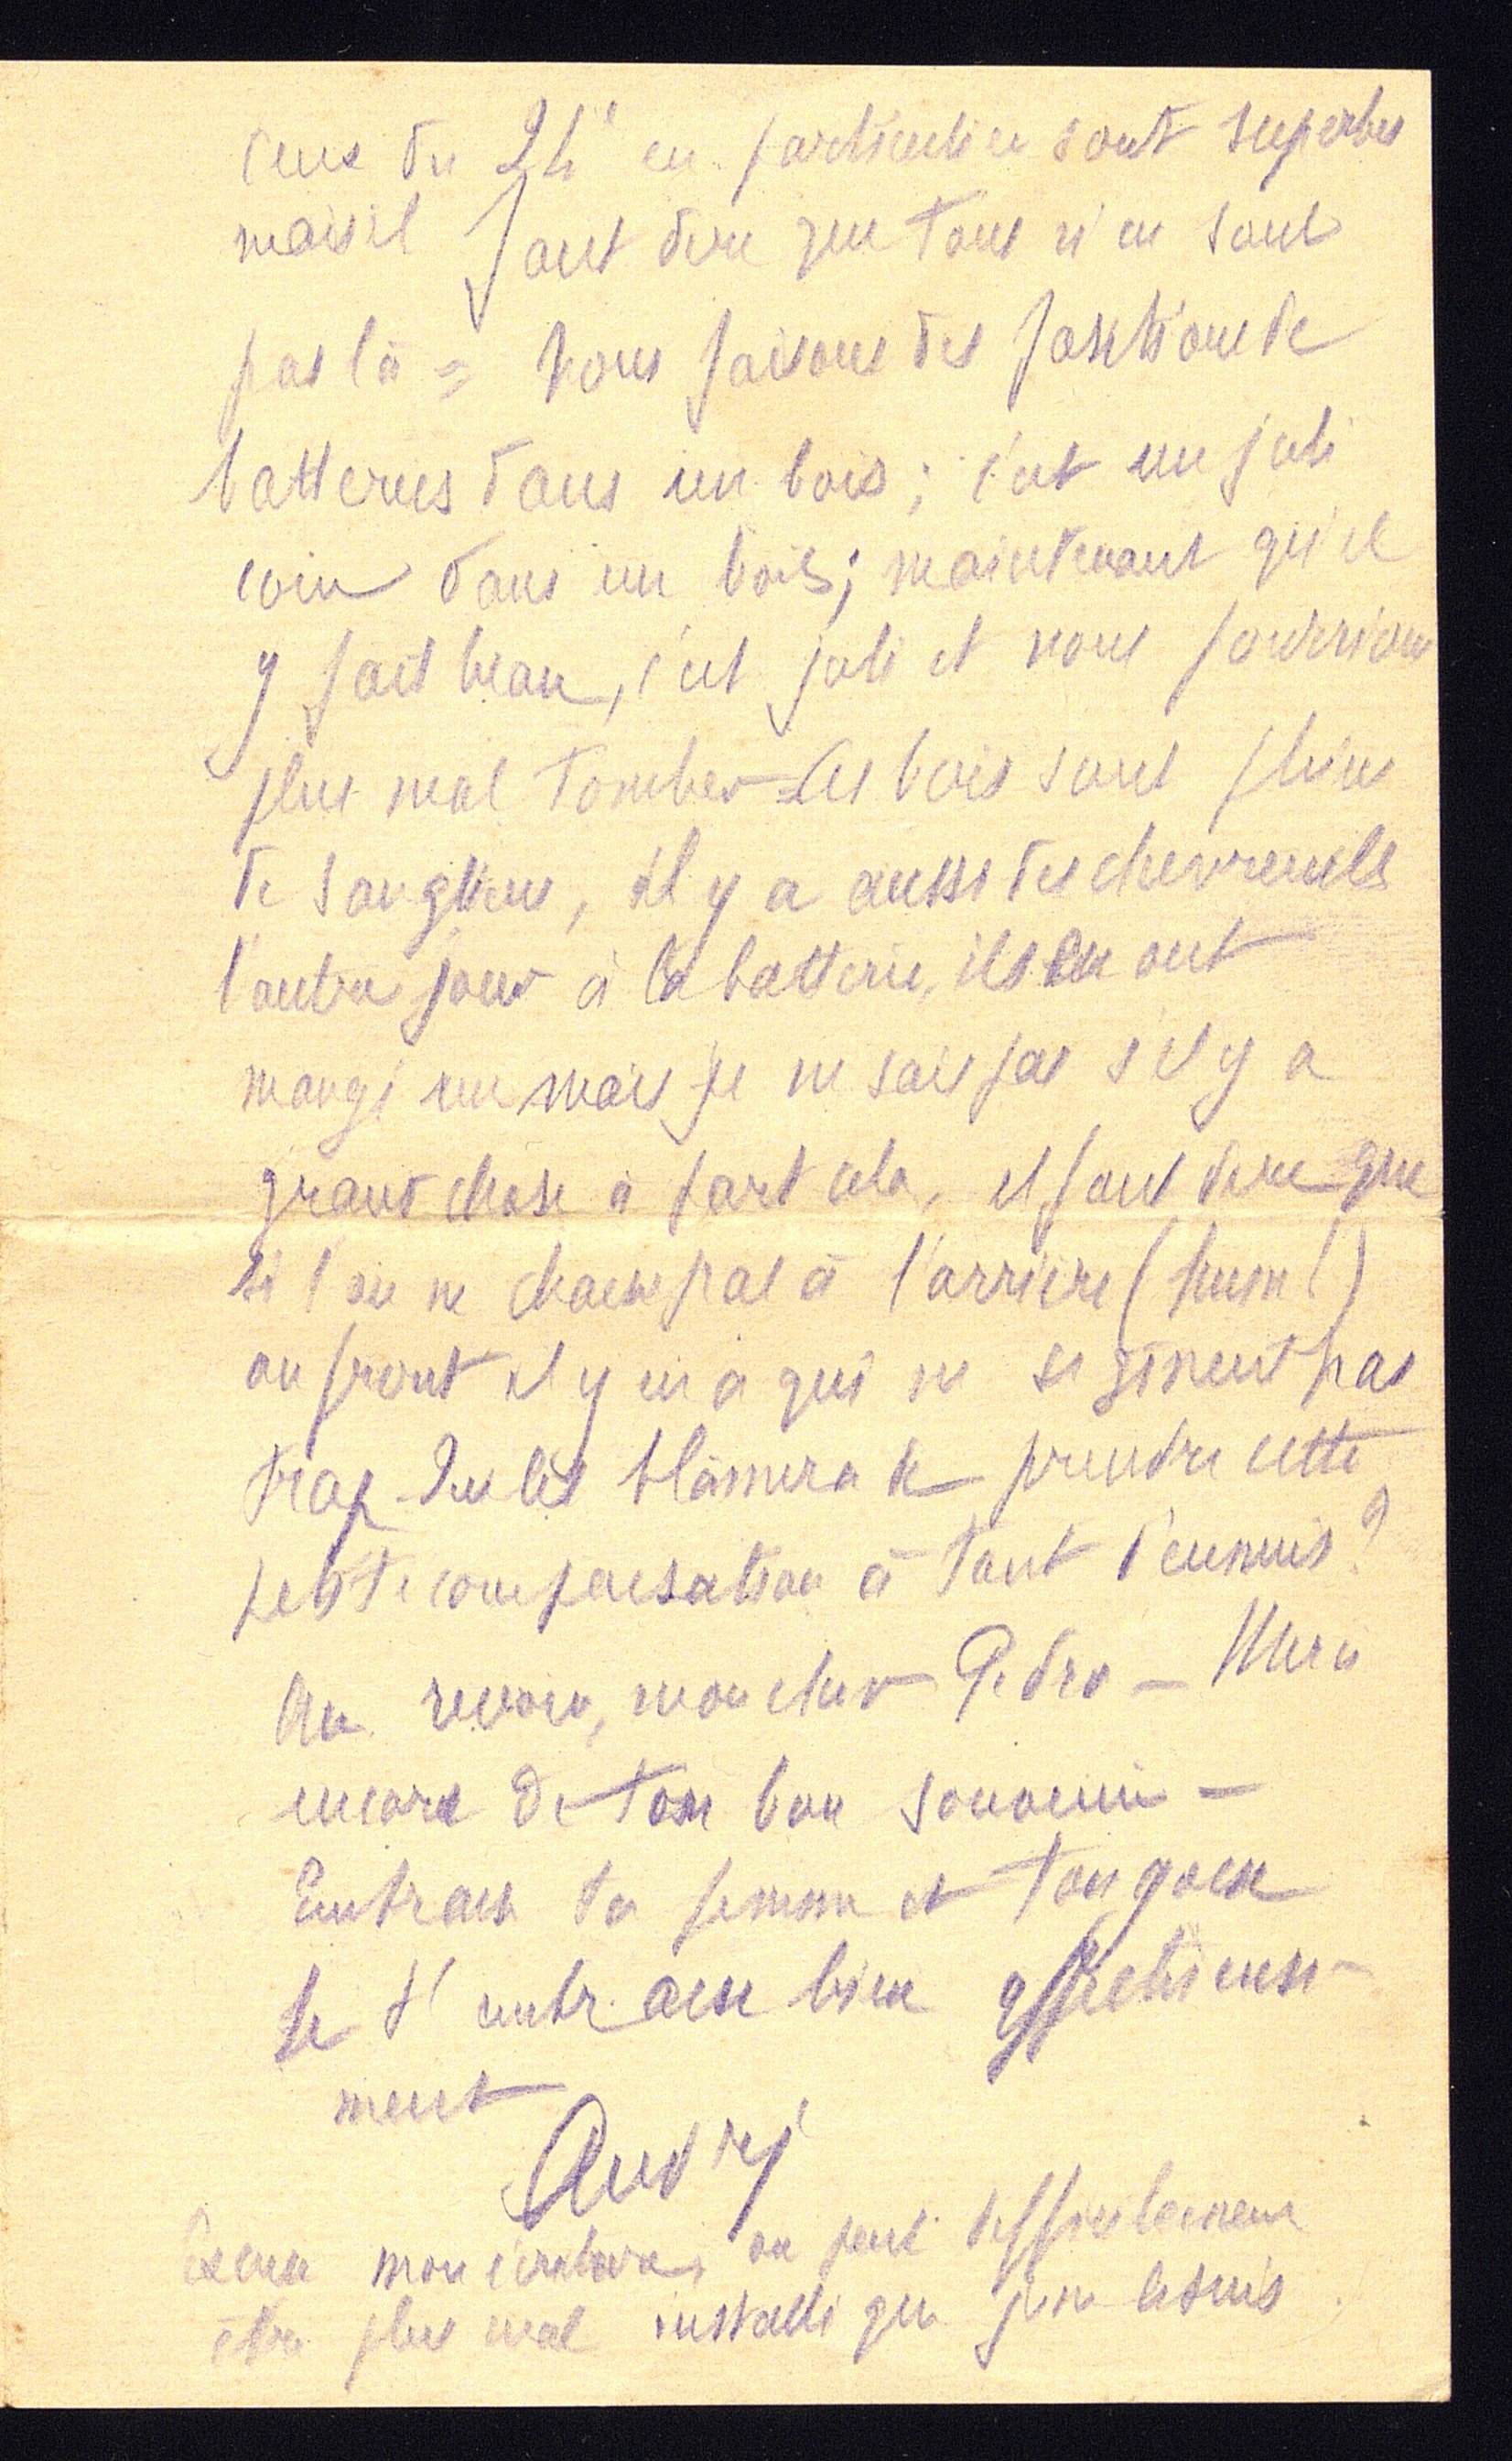 ceux du 24e en particulier sont superbes
mais il faut dire que tous n'en sont
pas là = Nous faisons des positions de
batteries dans un bois ; c'est un joli
coin dans un bois ; maintenant qu'il
y fait beau, c'est joli et nous pourrions
plus mal tomber = Les bois sont pleins
de sangliers, il y a aussi des chevreuils
l'autre jour à la batterie, ils en ont
mangé un mais je ne sais pas s'il y a
grand chose à part cela, il faut dire que
si l'on ne chasse pas à l'arrière (hum!)
au front il y en a qui ne se gênent pas
trop. Qui les blâmera de prendre cette
petite compensation à tant d'ennuis ?
Au revoir, mon cher Pedro — Merci
encore de ton bon souvenir —
Embrasse ta femme et ton gosse
Je t'embrasse bien affectueuse-
ment
André
Excuse mon écriture, on peut difficilement
être plus mal installé que je ne le suis.